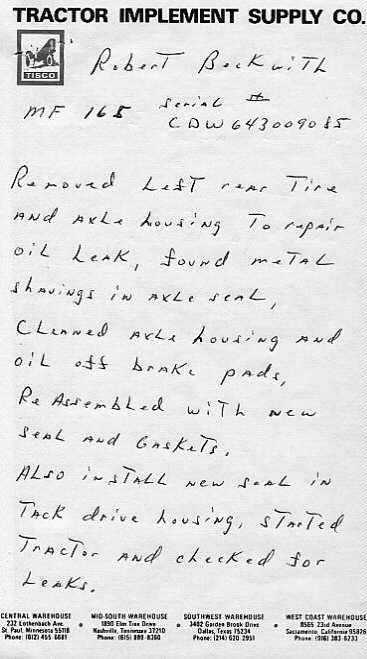 TRACTOR IMPLEMENT SUPPLY CO.
TISCO
Robert Beckwith
MF 165 serial #
CDW643009085
Removed Left rear Tire
AND AXLE housing To repair
oil LEAK, found metal
shavings in AXLE seal,
CLEANED AXLE housing AND
oil off brake pads,
Re Assembled with new
seal AND GASKETS.
ALSO install new seal in
TACK drive housing, started
Tractor AND checked for
Leaks.
CENTRAL WAREHOUSE
232 Lothenbach Ave.
St. Paul, Minnesota 55118
Phone: (612) 455 6681
MID-SOUTH WAREHOUSE
Elm Tree Drive
Nashville, Tennessee 37210
Phone: (615) 889-8360
SOUTHWEST WAREHOUSE
3402 Garden Brook Drive
Dallas, Texas 75234
Phone: (214) 620 2951
WEST COAST WAREHOUSE
8565 23rd Avenue
Sacramento, California 95826
Phone: (916) 383-6233